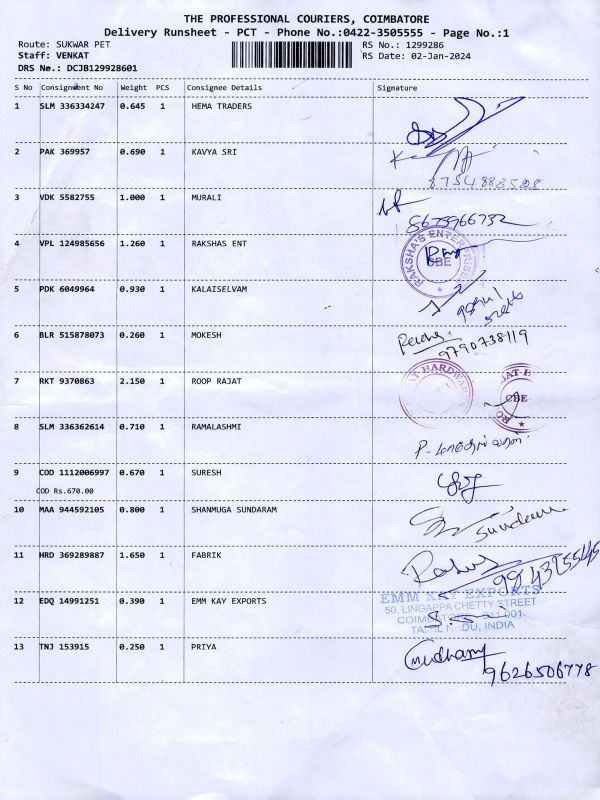 THE PROFESSIONAL COURIERS, COIMBATORE
Delivery Runsheet - PCT - Phone No.:0422-3505555 - Page No.:1
Route: SUKWAR PET
RS No.: 1299286
Staff: VENKAT
RS Date: 02-Jan-2024
DRS No.: DCJB129928601
S No Consignment No Weight PCS Consignee Details Signature
1 SLM 336334247 0.645 1 HEMA TRADERS
2 PAK 369957 0.690 1 KAVYA SRI
8754888528
3 VDK 5582755 1.000 1 MURALI
8675966732
4 VPL 124985656 1.260 1 RAKSHAS ENT
RAKSHA'S ENTERPRISES
CBE
5 PDK 6049964 0.930 1 KALAISELVAM
6 BLR 515878073 0.260 1 MOKESH
9790738119
7 RKT 9370863 2.150 1 ROOP RAJAT
HARDWARE
CBE
8 SLM 336362614 0.710 1 RAMALASHMI
9 COD 1112006997 0.670 1 SURESH
COD Rs.670.00
10 MAA 944592105 0.800 1 SHANMUGA SUNDARAM
Sundaram
11 HRD 369289887 1.650 1 FABRIK
994325545
12 EDQ 14991251 0.390 1 EMM KAY EXPORTS
EMM KAY EXPORTS
50, LINGAPPA CHETTY STREET
INDIA
13 TNJ 153915 0.250 1 PRIYA
9626506778